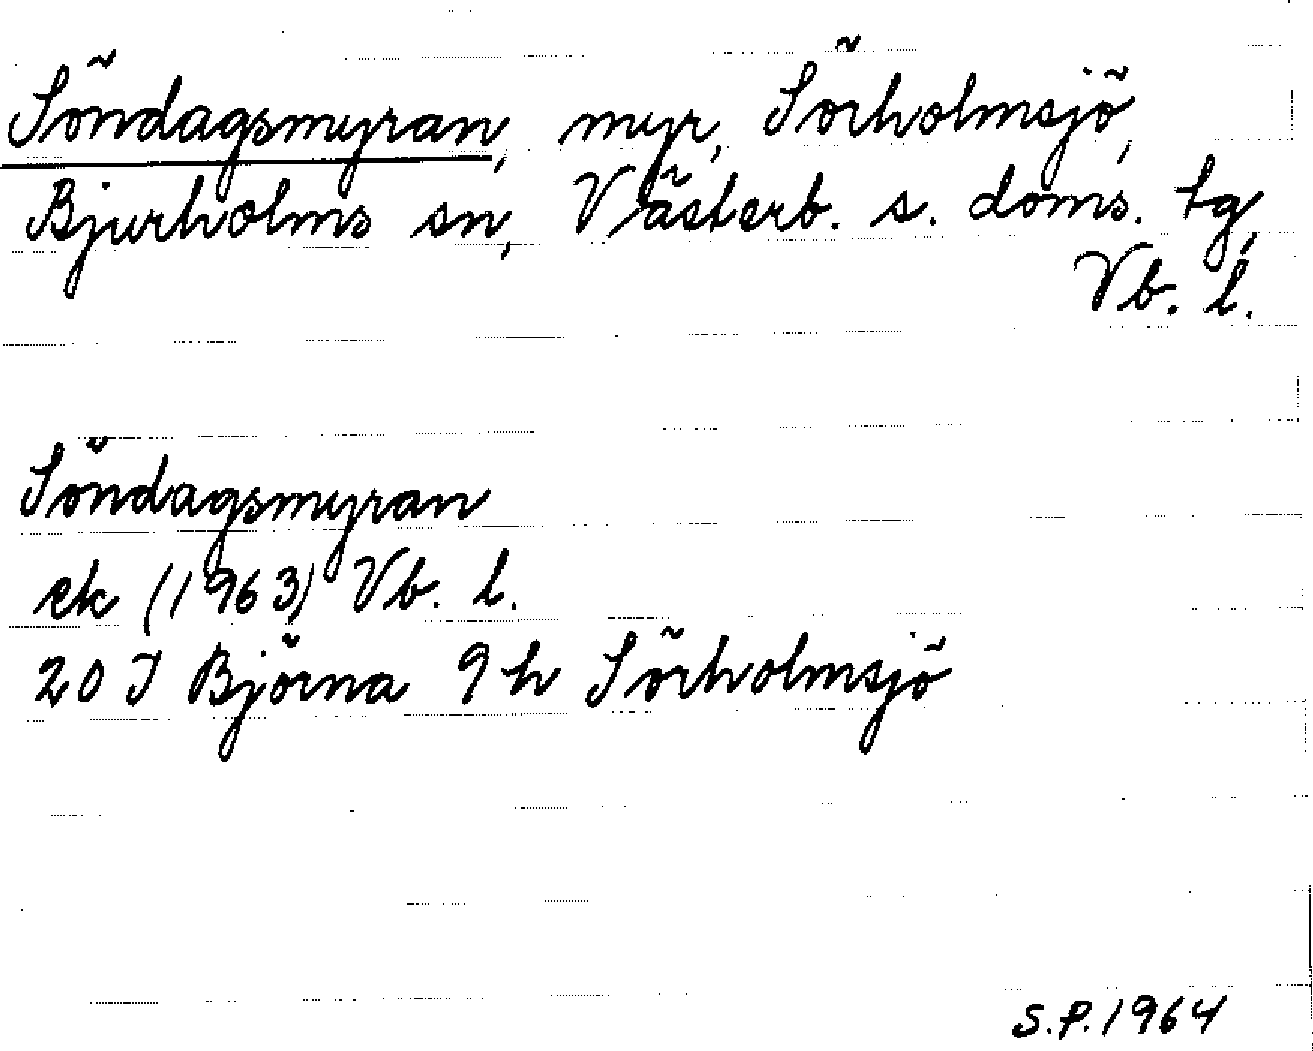 Söndagsmyran, myr, Sörholmsjö,
Bjurholms sn, Västerb. s. doms. tg,
Vb. l.
Söndagsmyran
ek (1963) Vb. l.
20 J Björna 9 h Sörholmsjö
S.P. 1964